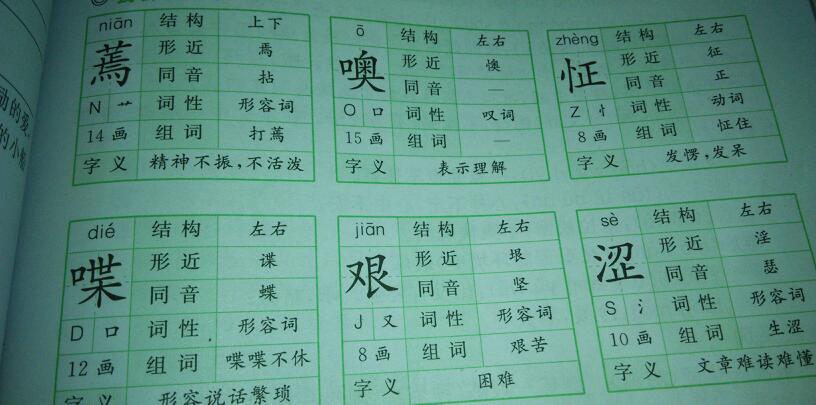 niān 结构 上下
蔫 形近 焉
同音 拈
N 艹 词性 形容词
14画 组词 打蔫
字义 精神不振，不活泼
ō 结构 左右
噢 形近 懊
同音 —
O 口 词性 叹词
15画 组词 —
字义 表示理解
zhèng 结构 左右
怔 形近 征
同音 正
Z 忄 词性 动词
8画 组词 怔住
字义 发愣，发呆
dié 结构 左右
喋 形近 谍
同音 蝶
D 口 词性 形容词
12画 组词 喋喋不休
字义 形容说话繁琐
jiān 结构 左右
艰 形近 垠
同音 坚
J 又 词性 形容词
8画 组词 艰苦
字义 困难
sè 结构 左右
涩 形近 淫
同音 瑟
S 氵 词性 形容词
10画 组词 生涩
字义 文章难读难懂
动的爱
的小船